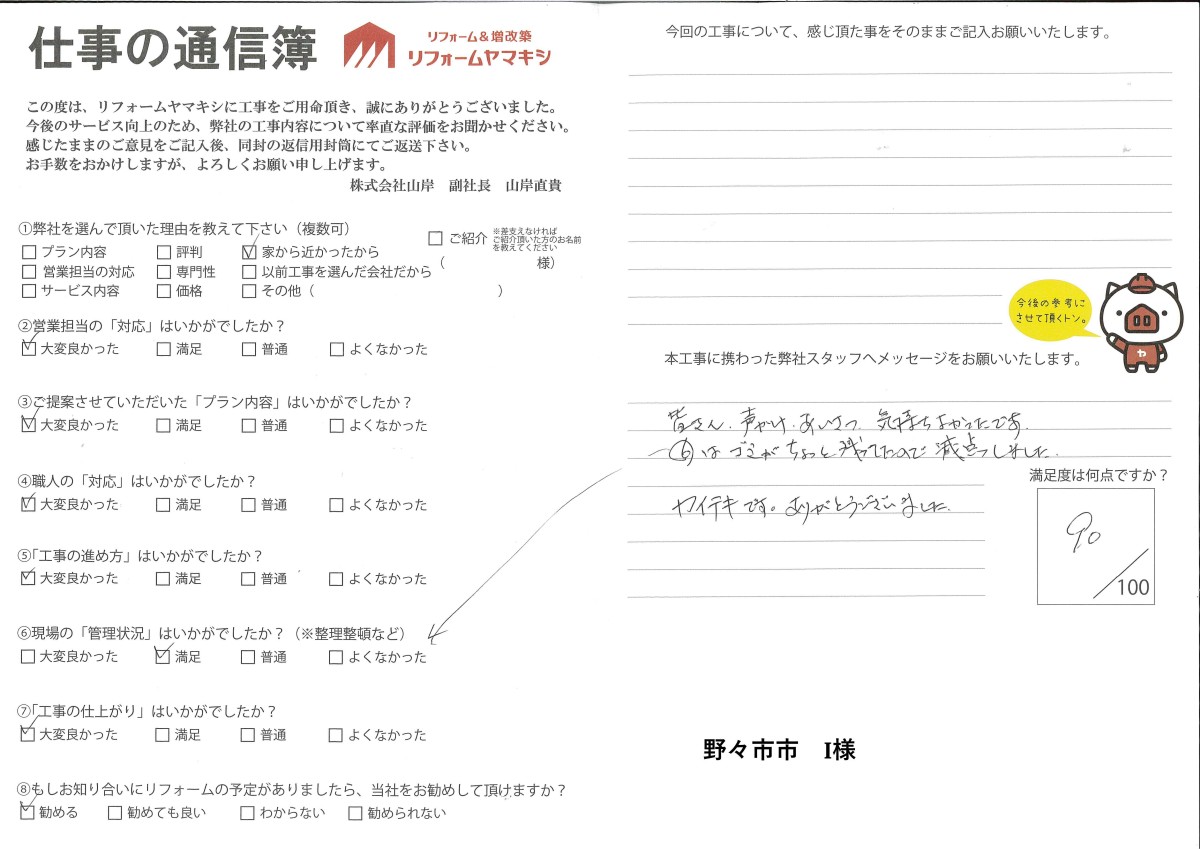 仕事の通信簿
リフォーム＆増改築
リフォームヤマキシ
この度は、リフォームヤマキシに工事をご用命頂き、誠にありがとうございました。
今後のサービス向上のため、弊社の工事内容について率直な評価をお聞かせください。
感じたままのご意見をご記入後、同封の返信用封筒にてご返送下さい。
お手数をおかけしますが、よろしくお願い申し上げます。
株式会社山岸　副社長　山岸直貴
①弊社を選んで頂いた理由を教えて下さい（複数可）
□ プラン内容　□ 評判　☑ 家から近かったから
□ 営業担当の対応　□ 専門性　□ 以前工事を選んだ会社だから
□ サービス内容　□ 価格　□ その他（　）
□ ご紹介
※差支えなければ
ご紹介頂いた方のお名前
を教えてください
（　様）
②営業担当の「対応」はいかがでしたか？
☑ 大変良かった　□ 満足　□ 普通　□ よくなかった
③ご提案させていただいた「プラン内容」はいかがでしたか？
☑ 大変良かった　□ 満足　□ 普通　□ よくなかった
④職人の「対応」はいかがでしたか？
☑ 大変良かった　□ 満足　□ 普通　□ よくなかった
⑤「工事の進め方」はいかがでしたか？
☑ 大変良かった　□ 満足　□ 普通　□ よくなかった
⑥現場の「管理状況」はいかがでしたか？（※整理整頓など）
□ 大変良かった　☑ 満足　□ 普通　□ よくなかった
⑦「工事の仕上がり」はいかがでしたか？
☑ 大変良かった　□ 満足　□ 普通　□ よくなかった
⑧もしお知り合いにリフォームの予定がありましたら、当社をお勧めして頂けますか？
☑ 勧める　□ 勧めても良い　□ わからない　□ 勧められない
今回の工事について、感じ頂た事をそのままご記入お願いいたします。
今後の参考に
させて頂くトン。
ヤ
本工事に携わった弊社スタッフへメッセージをお願いいたします。
皆さん、声かけ、あいさつ 気持ちよかったです。
⑥は ゴミが ちょっと 残ってたので 減点しました。
カイテキです。ありがとうございました。
満足度は何点ですか？
90
／100
野々市市　I様